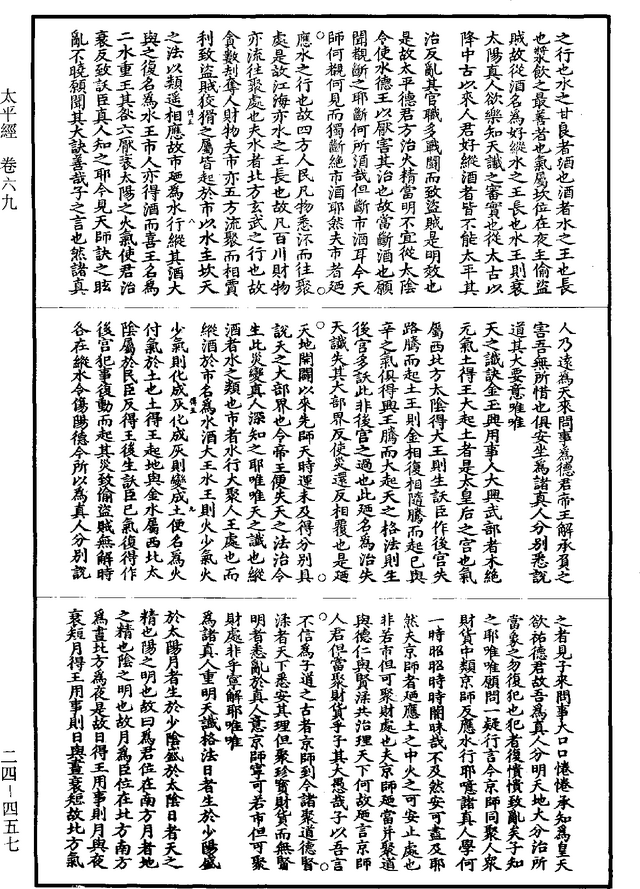 之行也水之甘良者酒也酒者水之王也長
也漿飲之最善者也氣屬坎位在夜主偷盜
賊故從酒名為好縱水之王長也水王則衰
太陽真人欲樂知天讖之審實也從太古以
降中古以來人君好縱酒者皆不能太平其
治反亂其官職多戰鬪而致盜賊是明效也
是故太平德君方治火精當明不宜從太陰
令使水德王以厭害其治也故當斷酒也願
聞觀斷之耶斷何所酒哉但斷市酒耳今天
師何覩何見而獨斷絕市酒耶然夫市者迺
應水之行也故四方人民凡物悉深而往聚
處是故江海亦水之王長也故凡百川財物
亦流往聚處也夫水者北方玄武之行也故
貪數刼奪人財物夫市亦五方流聚而相賈
利致盜賊狡猾之屬皆起於市以水主坎天
之法以類遥相應故市迺為水行縱其酒大
與之復名為水王市人亦得酒而喜王名為
二水重王其咎六厭衰太陽之火氣使君治
衰反致訞臣真人知之耶今見天師訣之眩
亂不曉願聞其大訣善哉子之言也然諸真
人乃遠為天來問事為德君帝王解承負之
害吾無所惜也俱安坐為諸真人分別悉說
道其大要意唯唯
天之讖訣金王興用事人大興武部者木絕
元氣土得王大起土者是太皇后之宮也氣
屬西北方太陰得大王則生訞臣作後宮失
路騰而起土王則金相復相隨騰而起已與
辛之氣俱得興王騰而大起天之格法則生
後宮多訞此非後宮之過也此迺名為治失
天讖失其大部界反使災還反相覆也是迺
天地開闢以來先師天時運未及得分別具
說天之大部界也今帝王便失天之法治令
生此災變真人深知之耶唯唯天之讖也縱
酒者水之類也市者水行大聚人王處也而
縱酒於市名為水酒大王水王則火少氣火
少氣則化成灰化成灰則變成土便名為火
付氣於土也土得王起地與金水屬西北太
陰屬於民臣反得王後生訞臣已氣復得作
後宮犯事復動而起其災致偷盜賊無解時
各在縱水令傷陽德今所以為真人分別說
之者見子來問事大口口惓惓承知為皇天
欲祐德君故吾為真人分明天地大分治所
當象之勿復犯也犯者復憒憒致亂矣子知
之耶唯唯願問一疑行言今京師同聚人衆
財貨中類京師反應水行耶噫諸真人學何
一時昭昭時時闇昧哉不及然安可盡及耶
然夫京師者迺應土之中火之可安止處也
非若市但可聚財處也夫京師迺當并聚道
與德仁與賢渘共治理天下何故迺言京師
人君但當聚財貨乎子其大愚哉子以吾言
不信為子道之古者京師到今諸聚道德賢
渘者天下悉安其理但聚珍寶財貨而無賢
明者悉亂於真人意京師寧可若市但可聚
財處非乎寧解耶唯唯
為諸真人重明天讖格法日者生於少陽盛
於太陽月者生於少陰盛於太陰日者天之
精也陽之明也故曰為君位在南方月者地
之精也陰之明也故月為臣位在北方南方
為晝北方為夜是故日得王用事則月與夜
衰短月得王用事則日與晝衰短故北方氣
太平經 卷六九
二四—四五七